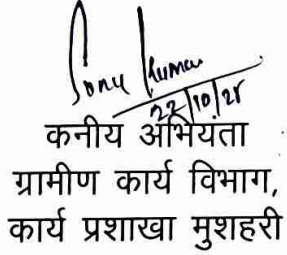 Sonu Kumar
22/10/25
कनीय अभियंता
ग्रामीण कार्य विभाग,
कार्य प्रशाखा मुशहरी